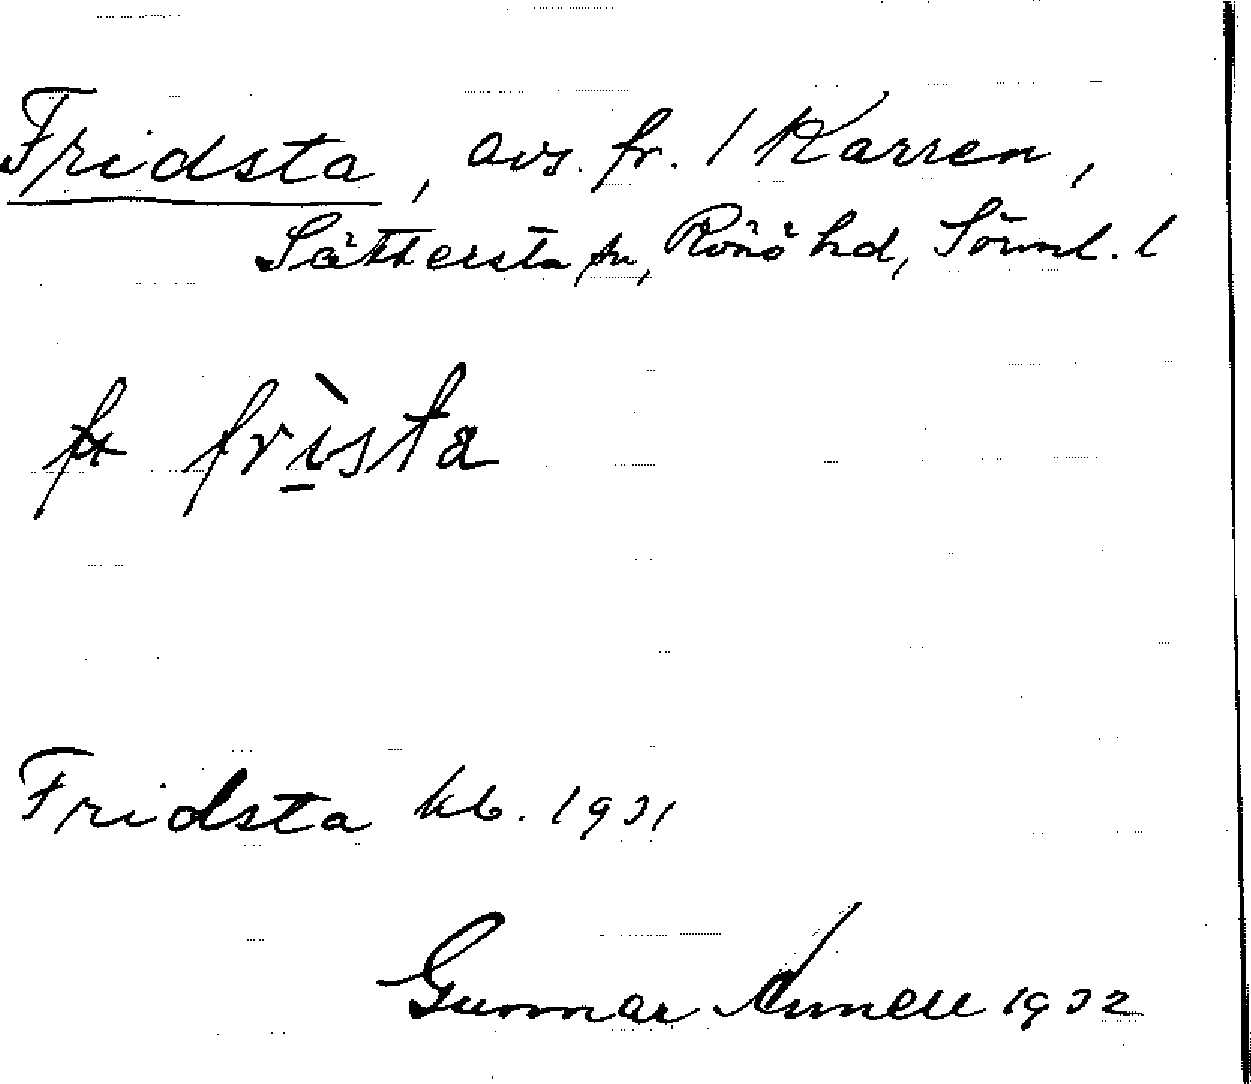 Fridsta, avs. fr. 1 Karsen,
Sättersta sn, Rönö hd, Sörml. l
fr frìsta
Fridsta kb. 1931
Gunnar Annell 1932